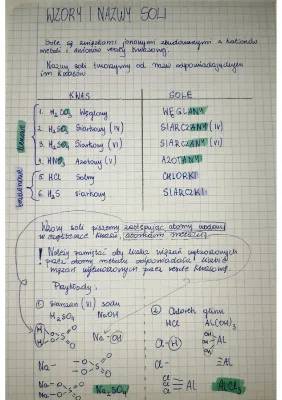 WZORY I NAZWY SOLI
Sole są związkami jonowymi zbudowanymi z kationów
metali i anionów reszty kwasowej.
Nazwy soli tworzymy od nazw odpowiadających
im kwasów
KWAS SOLE
1. H₂CO₃ Węglowy WĘGLANY
2. H₂SO₃ Siarkowy (IV) SIARCZANY (IV)
3. H₂SO₄ Siarkowy (VI) SIARCZANY (VI)
4. HNO₃ Azotowy (V) AZOTANY
5. HCl Solny CHLORKI
6. H₂S siarkowy SIARCZKI
tlenowe
beztlenowe
Wzory soli piszemy zastępując atomy wodoru
w cząsteczce kwasu, atomami metalu.
! Należy pamiętać aby liczba wiązań wytworzonych
przez atomy metalu odpowiadała liczbie
wiązań wytworzonych przez resztę kwasową.
Przykłady:
① Siarczan (VI) sodu
H₂SO₄ NaOH
Na-OH
Na-
Na₂SO₄
② Chlorek glinu
HCl Al(OH)₃
Cl-H
Cl- ≡Al
Cl ≡ Al
AlCl₃